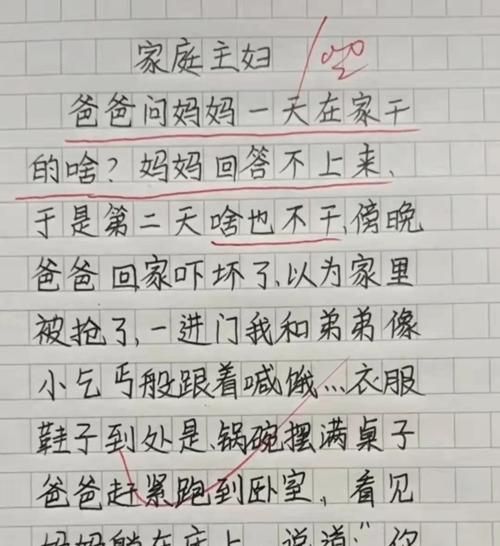 家庭主妇
爸爸问妈妈一天在家干
的啥？妈妈回答不上来、
于是第二天啥也不干,傍晚
爸爸回家吓坏了,以为家里
被抢了,一进门我和弟弟像
小乞丐般跟着喊饿…衣服
鞋子到处是,锅碗摆满桌子
爸爸赶紧跑到卧室，看见
妈妈躺在床上，说道:"你